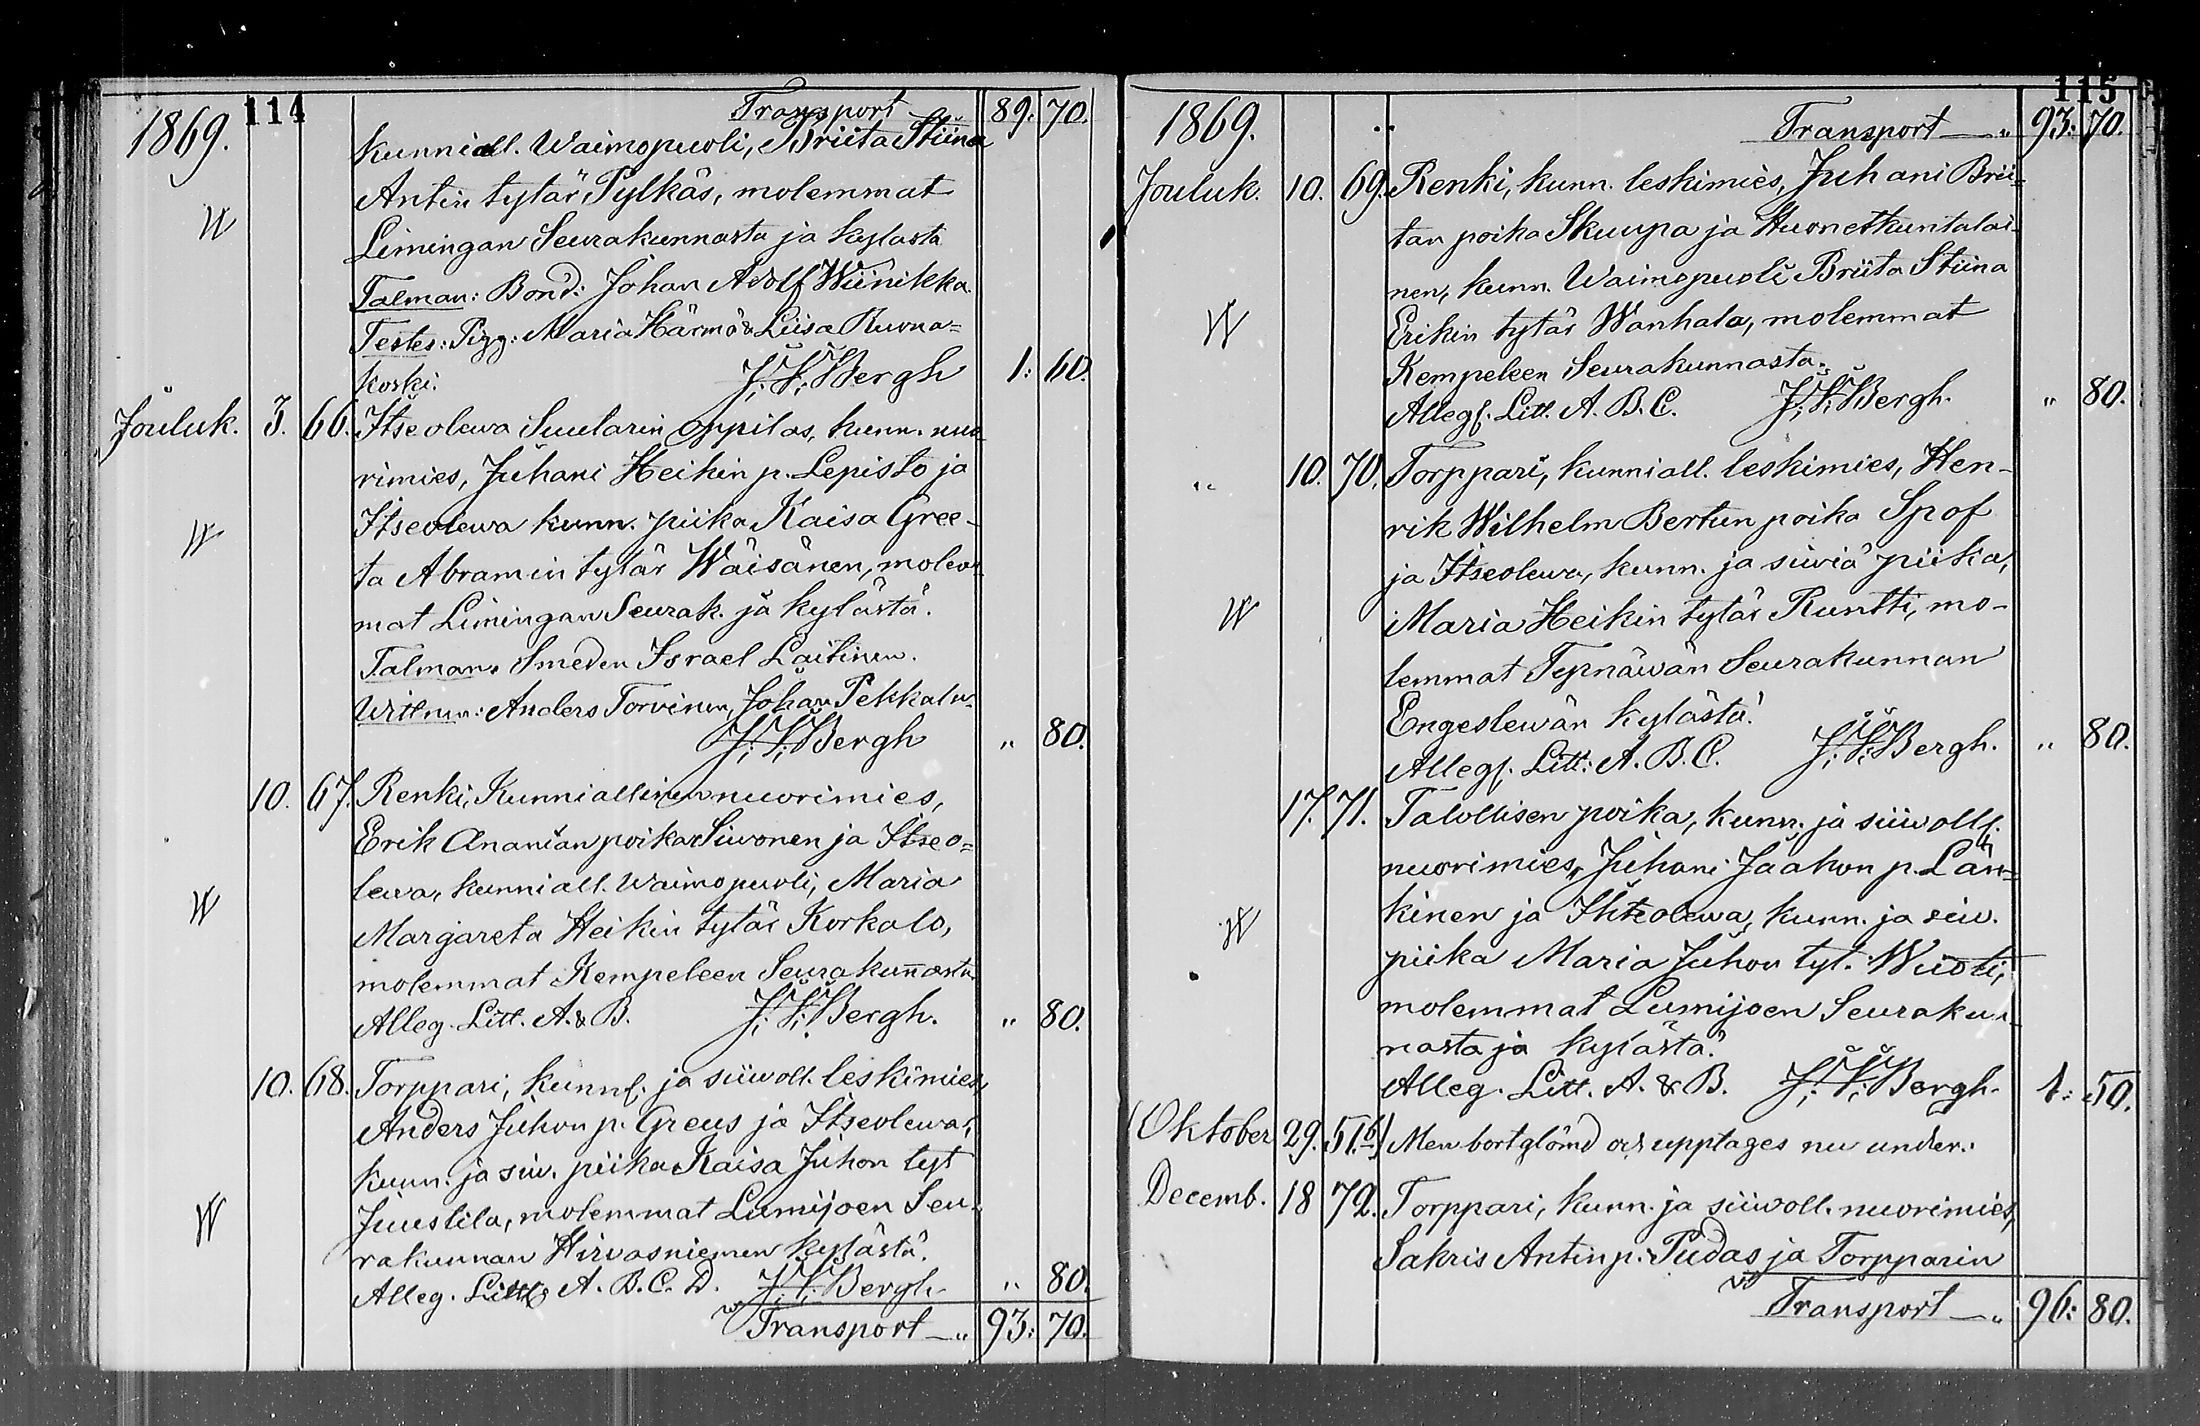 114
1869. Transport 89. 70.
Kunniall. Waimopuoli, Briita Stiina
Antin tytär Pylkäs, molemmat
W Limingan Seurakunnasta ja kylästa
Talman: Bond: Johan Adolf Wiinikka.
Testes: Pigg: Maria Härmä & Liisa Ruona=
koski. J. V. Bergh 1: 60.
Jouluk. 3. 66. Itseolewa Suutarin oppilas, kunn. nuo
rimies, Juhani Heikin p. Lepisto ja
Itseolewa kunn. piika Kaisa Gree-
W ta Abramin tytär Wäisänen, molem
mat Limingan Seurak. ja kylästä.
Talman: Smeden Israel Laitinen.
Wittnen: Anders Torvinen, Johan Pekkala
J. V. Bergh " 80.
10. 67. Renki, Kunniallinen nuorimies,
Erik Ananian poika Siwonen ja Itseo=
lewa, kunniall. Waimopuoli, Maria
W Margareta Heikin tytär Korkalo,
molemmat Kempeleen Seurakun̄asta
Alleg. Litt. A. & B. J. V. Bergh. " 80.
10. 68. Torppari, kunnl. ja siiwoll. leskimies,
Anders Juhon p. Greus ja Itseolewa,
kunn. ja siw. piika Kaisa Juhon tyt
W Juustila, molemmat Lumijoen Seu-
rakunnan Hirvasniemen kylästä.
Alleg. Litt. A. B. C. D. J. V. Bergh " 80.
Transport " 93: 70.
115
1869. Transport " 93: 70.
Jouluk. 10. 69. Renki, kunn. leskimies, Juhani Brii=
tan poika Skuupa ja Huonetkuntalai-
nen, kunn. Waimopuoli Briita Stiina
W Erikin tytär Wanhala, molemmat
Kempeleen Seurakunnasta.
Alleg. Litt. A. B. C. J. V. Bergh. " 80.
" 10. 70. Torppari, kunniall. leskimies, Hen-
rik Wilhelm Bertun poika Spof
ja Itseolewa, kunn. ja siwiä piika,
W Maria Heikin tytär Runtti, mo-
lemmat Tyrnäwän Seurakunnan
Engeslewän kylästä.
Alleg. Litt: A. B. C. J. V. Bergh. " 80.
17. 71. Talollisen poika, kunn. ja siiwoll.
nuorimies, Juhani Jaakon p. Län=
W kinen ja Ihtseolewa, kunn. ja siw.
piika Maria Juhon tyt. Wuoti,
molemmat Lumijoen Seurakun
nasta ja kylästä.
Alleg. Litt. A. & B. J. V. Bergh. 1: 50.
(Oktober 29. 51.b) Men bortglömd och upptages nu under:
Decemb. 18 72. Torppari, kunn. ja siiwoll. nuorimies,
Sakris Antin p. Pudas ja Torpparin
Transport " 96: 80.